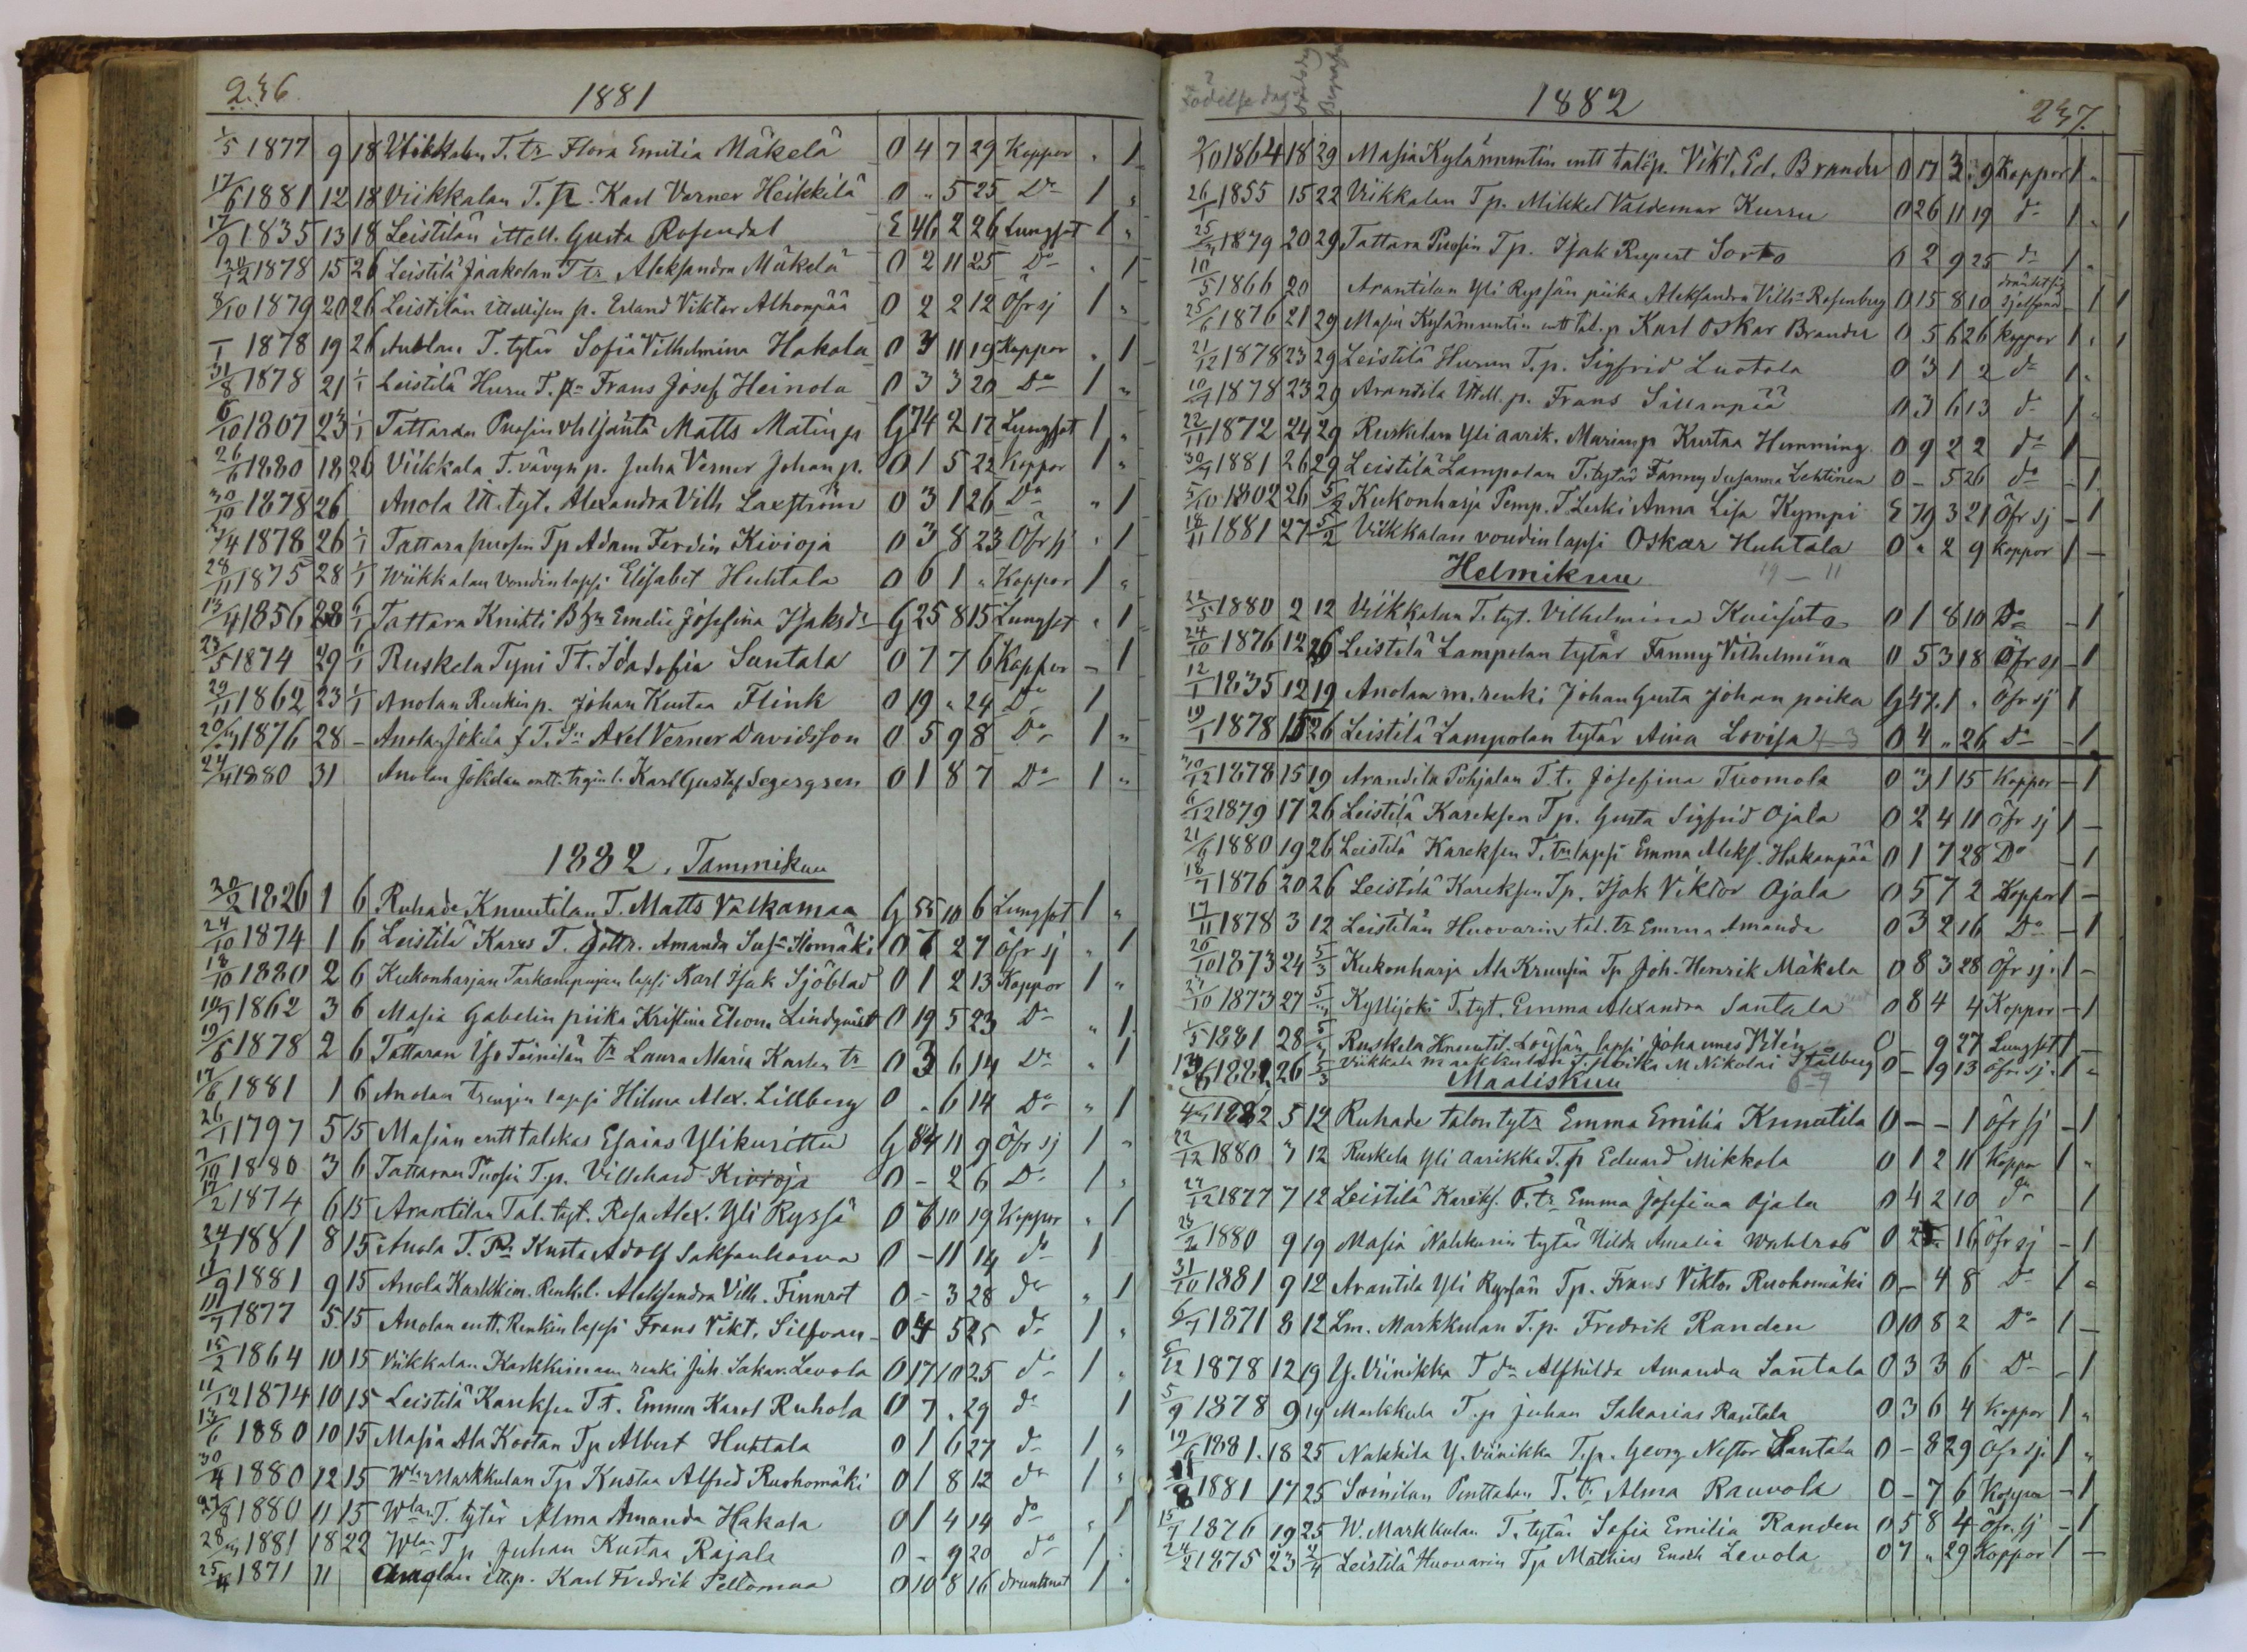 236
1881
1/5 1877 9 18 Viikkalan T. tr Flora Emilia Mäkelä 0 4 7 29 Koppor „ 1
17/6 1881 12 18 Viikkalan T. p. Karl Verner Heikkilä 0 „ 5 25 Do 1 „
17/9 1835 13 18 Leistilän ittell. Gusta Rosendal E 46 2 26 Lungsot 1 „
20/12 1878 15 26 Leistilä Jaakolan T tr Aleksandra Mäkelä 0 2 11 25 Do „ 1
8/10 1879 20 26 Leistilän ittellisen p. Erland Viktor Alhonpää 0 2 2 12 Öfr sj 1 „
1/1 1878 19 26 Anolan T. tytär Sofia Vilhelmina Hakala 0 3 11 19 Koppor „ 1
31/8 1878 21 1/1 Leistilä Huru T. p. Frans Josef Heinola 0 3 3 20 Do 1 „
6/10 1807 23 1/1 Tattaran Puosin vh Isäntä Matts Matinp G 74 2 17 Lungsot 1 „
26/6 1880 18 26 Viikkala T. vävyn p. Juha Verner Johan p. 0 1 5 22 Koppor 1 „
30/10 1878 26 Anola itt. tyt. Alexandra Vilh Laxström 0 3 1 26 Do „ 1
3/4 1878 26 1/1 Tattara puosin Tp Adam Ferdin Kivioja 0 3 8 23 Öfr sj „ 1
28/11 1875 28 1/1 Wiikkalan voudin lapsi Elisabet Huhtala 0 6 1 „ Koppor 1 „
13/4 1856 28 6/1 Tattara Knihti Emelie Josefina Isaksdr G 25 8 15 Lungsot „ 1
23/5 1874 29 6/1 Ruskela Tyni T t. Ida Sofia Santala 0 7 7 6 Koppor – 1
29/11 1862 23 1/1 Anolan Renkin p. Johan Kustaa Flink 0 19 „ 24 Do 1
20/3 1876 28 – Anola Jokela f T. Axel Verner Davidsson 0 5 9 8 Do 1 „
24/4 1880 31 Anolan Jokelan entt. l. Karl Gustaf Segergren 0 1 8 7 Do 1 „
1882. Tammikuu
30/2 1826 1 6 Ruhade Knuutilan T. Matts Valkamaa G 55 10 6 Lungsot 1 „
24/10 1874 1 6 Leistilä Kares T. dottr. Amanda Ilomäki 0 7 2 7 öfr sj „ 1
18/10 1880 2 6 Kukonharjan lapsi Karl Isak Sjöblad 0 1 2 13 Koppor 1 „
10/7 1862 3 6 Masia Gabelin piika Kristina Eleona Lindqvist 0 19 5 23 Do „ 1
19/6 1878 2 6 Tattaran Iso Teinilän tr Laura Maria Karlin tr 0 3 6 14 Do „ 1
17/6 1881 1 6 Anolan lapsi Hilma Alex. Lillberg 0 „ 6 14 Do „ 1
26/1 1797 5 15 Masian entt talokas Esaias Ylikuritta G 84 11 9 Öfr sj 1 „
7/10 1880 3 6 Tattaran Puosin T.p. Villehard Kivioja 0 – 2 6 Do 1 „
17/2 1874 6 15 Arantilan Tal. tyt. Rosa Alex. Yli Ryssä 0 7 10 19 Koppor „ 1
24/1 1881 8 15 Anola T. Kusta Adolf Saksankorva 0 – 11 14 do 1
11/9 1881 9 15 Anola Karkkim. Renk l. Aleksandra Vilh. Finnrot 0 – 3 28 do „ 1
11/7 1877 5 15 Anolan entt. Renkin lapsi Frans Vikt. Silfvan 0 4 5 25 do 1 „
15/2 1864 10 15 Viikkalan Karkkimaan renki Juh. Sakar. Levola 0 17 10 25 do 1 „
11/12 1874 10 15 Leistilä Kareksen T t. Emma Karol Ruhola 0 7 „ 29 do 1
13/6 1880 10 15 Masia Ala Kootan Tp Albert Huhtala 0 1 6 27 do 1 „
30/4 1880 12 15 Wlan Markkulan Tp Kustaa Alfred Ruohomäki 0 1 8 12 do 1 „
27/8 1880 11 15 Wlan T. tytär Alma Amanda Hakala 0 1 4 14 do „ 1
28/3 1881 18 22 Wlan T p Juhan Kustaa Rajala 0 – 9 20 do 1 „
25/4 1871 11 Anolan itt p. Karl Fredrik Peltomaa 0 10 8 16 drunknat 1 „
Födelse dag
1882
237.
2/10 1864 18 29 Masia Kylämuntin entt talo p. Vikt. Ed. Brander 0 17 3 9 Koppor 1 „
26/1 1855 15 22 Viikkalan T p. Mikkel Valdemar Kurru 0 26 11 19 do 1 „ 1
25/3 1879 20 29 Tattara Puosin T p. Isak Rupert Sorto 0 2 9 25 do 1 „
10/5 1866 20 Arantilan Yli Ryssän piika Aleksandra Vilhn Rosenberg 0 15 8 10 dränkt sig sjelfmord – 1 1
25/6 1876 21 29 Masia Kylämuntin entt tal. p Karl Oskar Brander 0 5 6 26 koppor 1 „ 1
21/12 1878 23 29 Leistilä Hurun T. p. Sigfrid Luotola 0 3 1 2 do 1 „
10/7 1878 23 29 Arantila Ittell. p. Frans Sillanpää 0 3 6 13 do 1 „
22/11 1872 24 29 Ruskelan Yli aarik. Marian p Kustaa Hemming 0 9 2 2 do 1
30/7 1881 26 29 Leistilä Lampolan T. tytär Fanny Susanna Lehtinen 0 – 5 26 do – 1
5/10 1802 26 5/2 Kukonharja Pemp. T Leski Anna Lisa Kympi E 79 3 21 Öfr sj – 1
18/11 1881 27 5/2 Viikkalan voudin lapsi Oskar Huhtala 0 „ 2 9 koppor 1 –
Helmikuu 19 – 11
22/5 1880 2 12 Viikkalan T. tyt. Vilhelmina Kuusisto 0 1 8 10 Do – 1
24/10 1876 12 26 Leistilä Lampolan tytär Fanny Vilhelmiina 0 5 3 18 Öfr sj – 1
12/1 1835 12 19 Anolan m. renki Johan Gusta Johan poika G 47 1 „ Öfr sj 1
19/1 1878 15 26 Leistilä Lampolan tytär Aina Lovisa 4–3 0 4 „ 26 Do – 1
30/12 1878 15 19 Arandila Pohjalan T. t. Josefina Tuomola 0 3 1 15 Koppor – 1
6/12 1879 17 26 Leistilä Kareksen T p. Gusta Sigfrid Ojala 0 2 4 11 Öfr sj 1 –
21/6 1880 19 26 Leistilä Kareksen T. lapsi Emma Aleks. Hakanpää 0 1 7 28 Do – 1
18/7 1876 20 26 Leistilä Kareksen Tp. Isak Viktor Ojala 0 5 7 2 Koppor 1 –
17/11 1878 3 12 Leistilän Huovarin tal. tr Emma Amanda 0 3 2 16 Do – 1
26/10 1873 24 5/3 Kukonharja Ala Kruusin Tp Joh. Henrik Mäkela 0 8 3 28 Öfr sj. 1 –
27/10 1873 27 5/3 Kyllijoki T. tyt. Emma Alexandra Santala 0 8 4 4 Koppor – 1
1/5 1881 28 5/3 Ruskela Knuutil. Löysän lapsi Johannes Yrtén 0 – 9 27 Lungsot 1 –
13/6 1881 26 5/3 Viikkala Markkulan T. poika M Nikolai Stålberg 0 – 19 13 öfr. sj. 1 –
Maaliskuu 6–7
4/3 1882 5 12 Ruhade talon tytr Emma Emilia Knuutila 0 – – 1 öfr sj – 1
22/12 1880 3 12 Ruskela Yli aarikka T. p Eduard Mikkola 0 1 2 11 Koppor 1 „
27/12 1877 7 12 Leistilä Kareks. T. tr Emma Josefina Ojala 0 4 2 10 do 1
23/2 1880 9 19 Masia Nahkurin tytär Hilda Amalia Wahlroos 0 2 „ 16 öfr sj – 1
31/10 1881 9 12 Arantila Yli Ryssän Tp. Frans Viktor Ruohomäki 0 – 4 8 Do 1 „
6/7 1871 8 12 Lm. Markkulan T. p. Fredrik Randen 0 10 8 2 Do 1 –
6/12 1878 12 19 Y. Viinikka T dr Alfhilda Amanda Santala 0 3 3 6 Do – 1
5/9 1878 9 19 Markkula T. p Juhan Sakarias Rantala 0 3 6 4 Koppor 1 „
19/6 1881 18 25 Nakkila Y. Viinikka T. p. Georg Nestor Santala 0 – 8 29 Öfr sj. 1 „
11/8 1881 17 25 Soinilan Penttalan T. tr Alma Rauvola 0 – 7 6 Koppor – 1
15/7 1876 19 25 W. Markkulan T. tytär Sofia Emilia Randen 0 5 8 4 öfr. sj – 1
24/2 1875 23 2/4 Leistilä Huovarin Tp Mathias Enok Levola 0 7 „ 29 Koppor 1 –